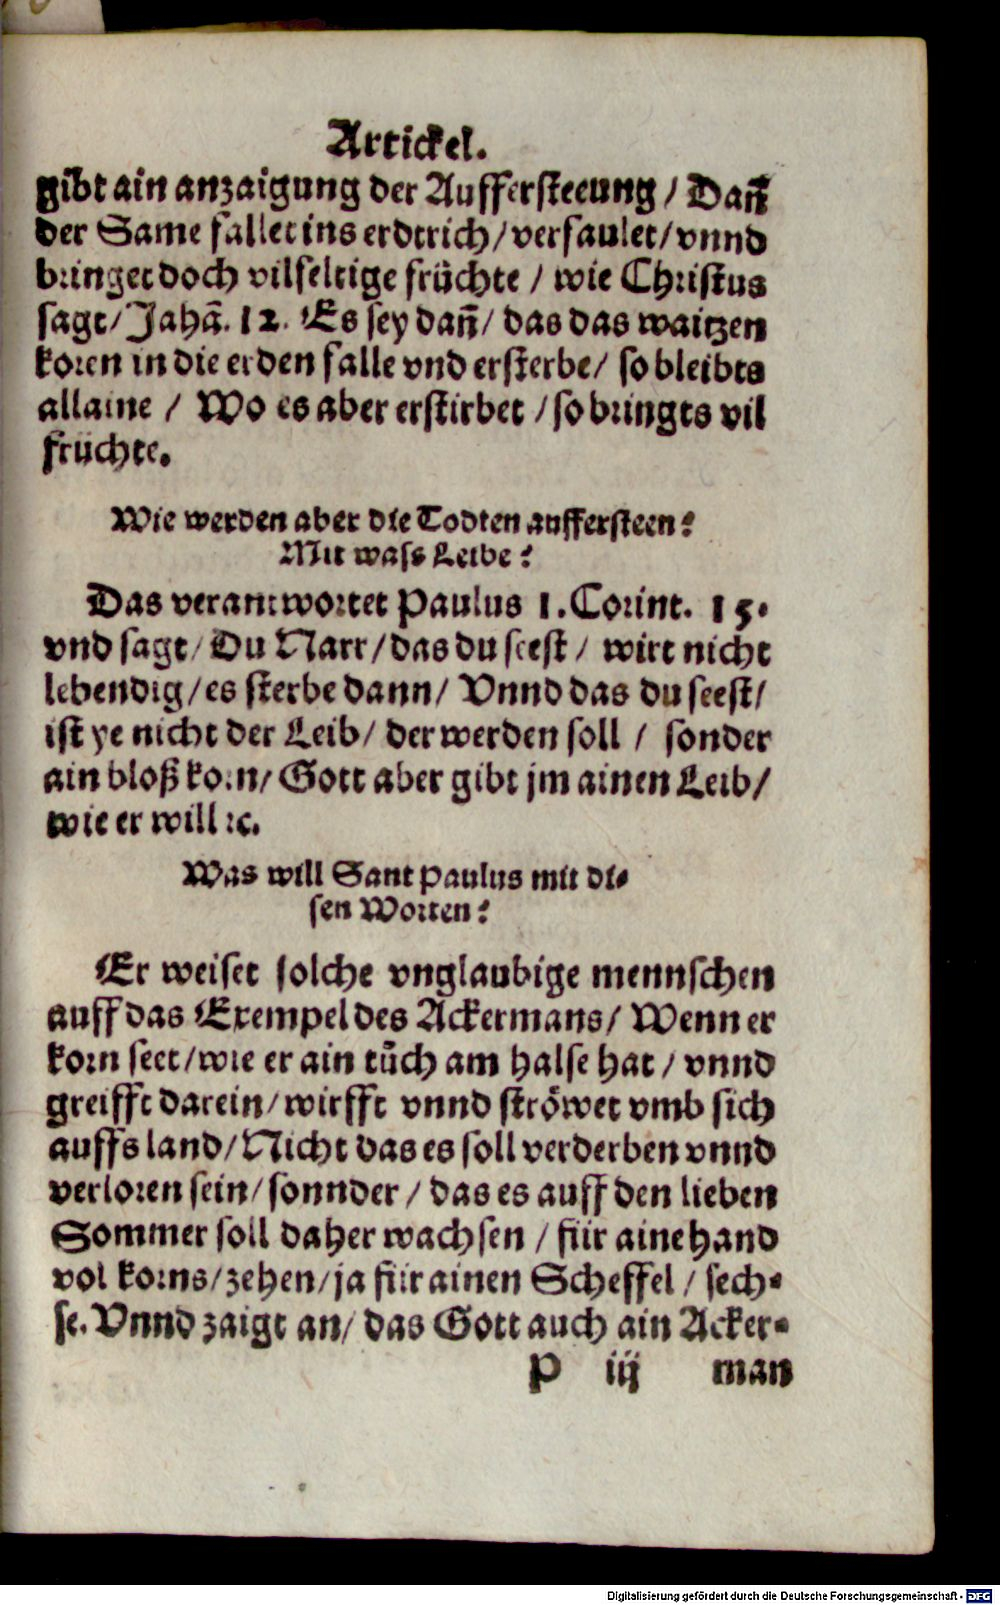 Artickel.
gibt ain anzaigung der Aufferſteeung / Dañ
der Same fallet ins erdtrich / verfaulet / vnnd
bringet doch vilfeltige früchte / wie Chriſtus
ſagt / Jahã. 12. Es ſey dañ / das das waitzen
koren in die erden falle vnd erſterbe / ſo bleibts
allaine / Wo es aber erſtirbet / ſo bringts vil
früchte.
Wie werden aber die Todten aufferſteen?
Mit waſs Leibe?
Das verantwortet Paulus 1. Corint. 15.
vnd ſagt / Du Narr / das du ſeeſt / wirt nicht
lebendig / es ſterbe dann / Vnnd das du ſeeſt /
iſt ye nicht der Leib / der werden ſoll / ſonder
ain bloß korn / Gott aber gibt jm ainen Leib /
wie er will ꝛc.
Was will Sant Paulus mit di⸗
ſen Worten?
Er weiſet ſolche vnglaubige mennſchen
auff das Exempel des Ackermans / Wenn er
korn ſeet / wie er ain tůch am halſe hat / vnnd
greifft darein / wirfft vnnd ſtröwet vmb ſich
auffs land / Nicht das es ſoll verderben vnnd
verloren ſein / ſonnder / das es auff den lieben
Sommer ſoll daher wachſen / für aine hand
vol korns / zehen / ja für ainen Scheffel / ſech⸗
ſe. Vnnd zaigt an / das Gott auch ain Acker⸗
P iij man
Digitalisierung gefördert durch die Deutsche Forschungsgemeinschaft - DFG